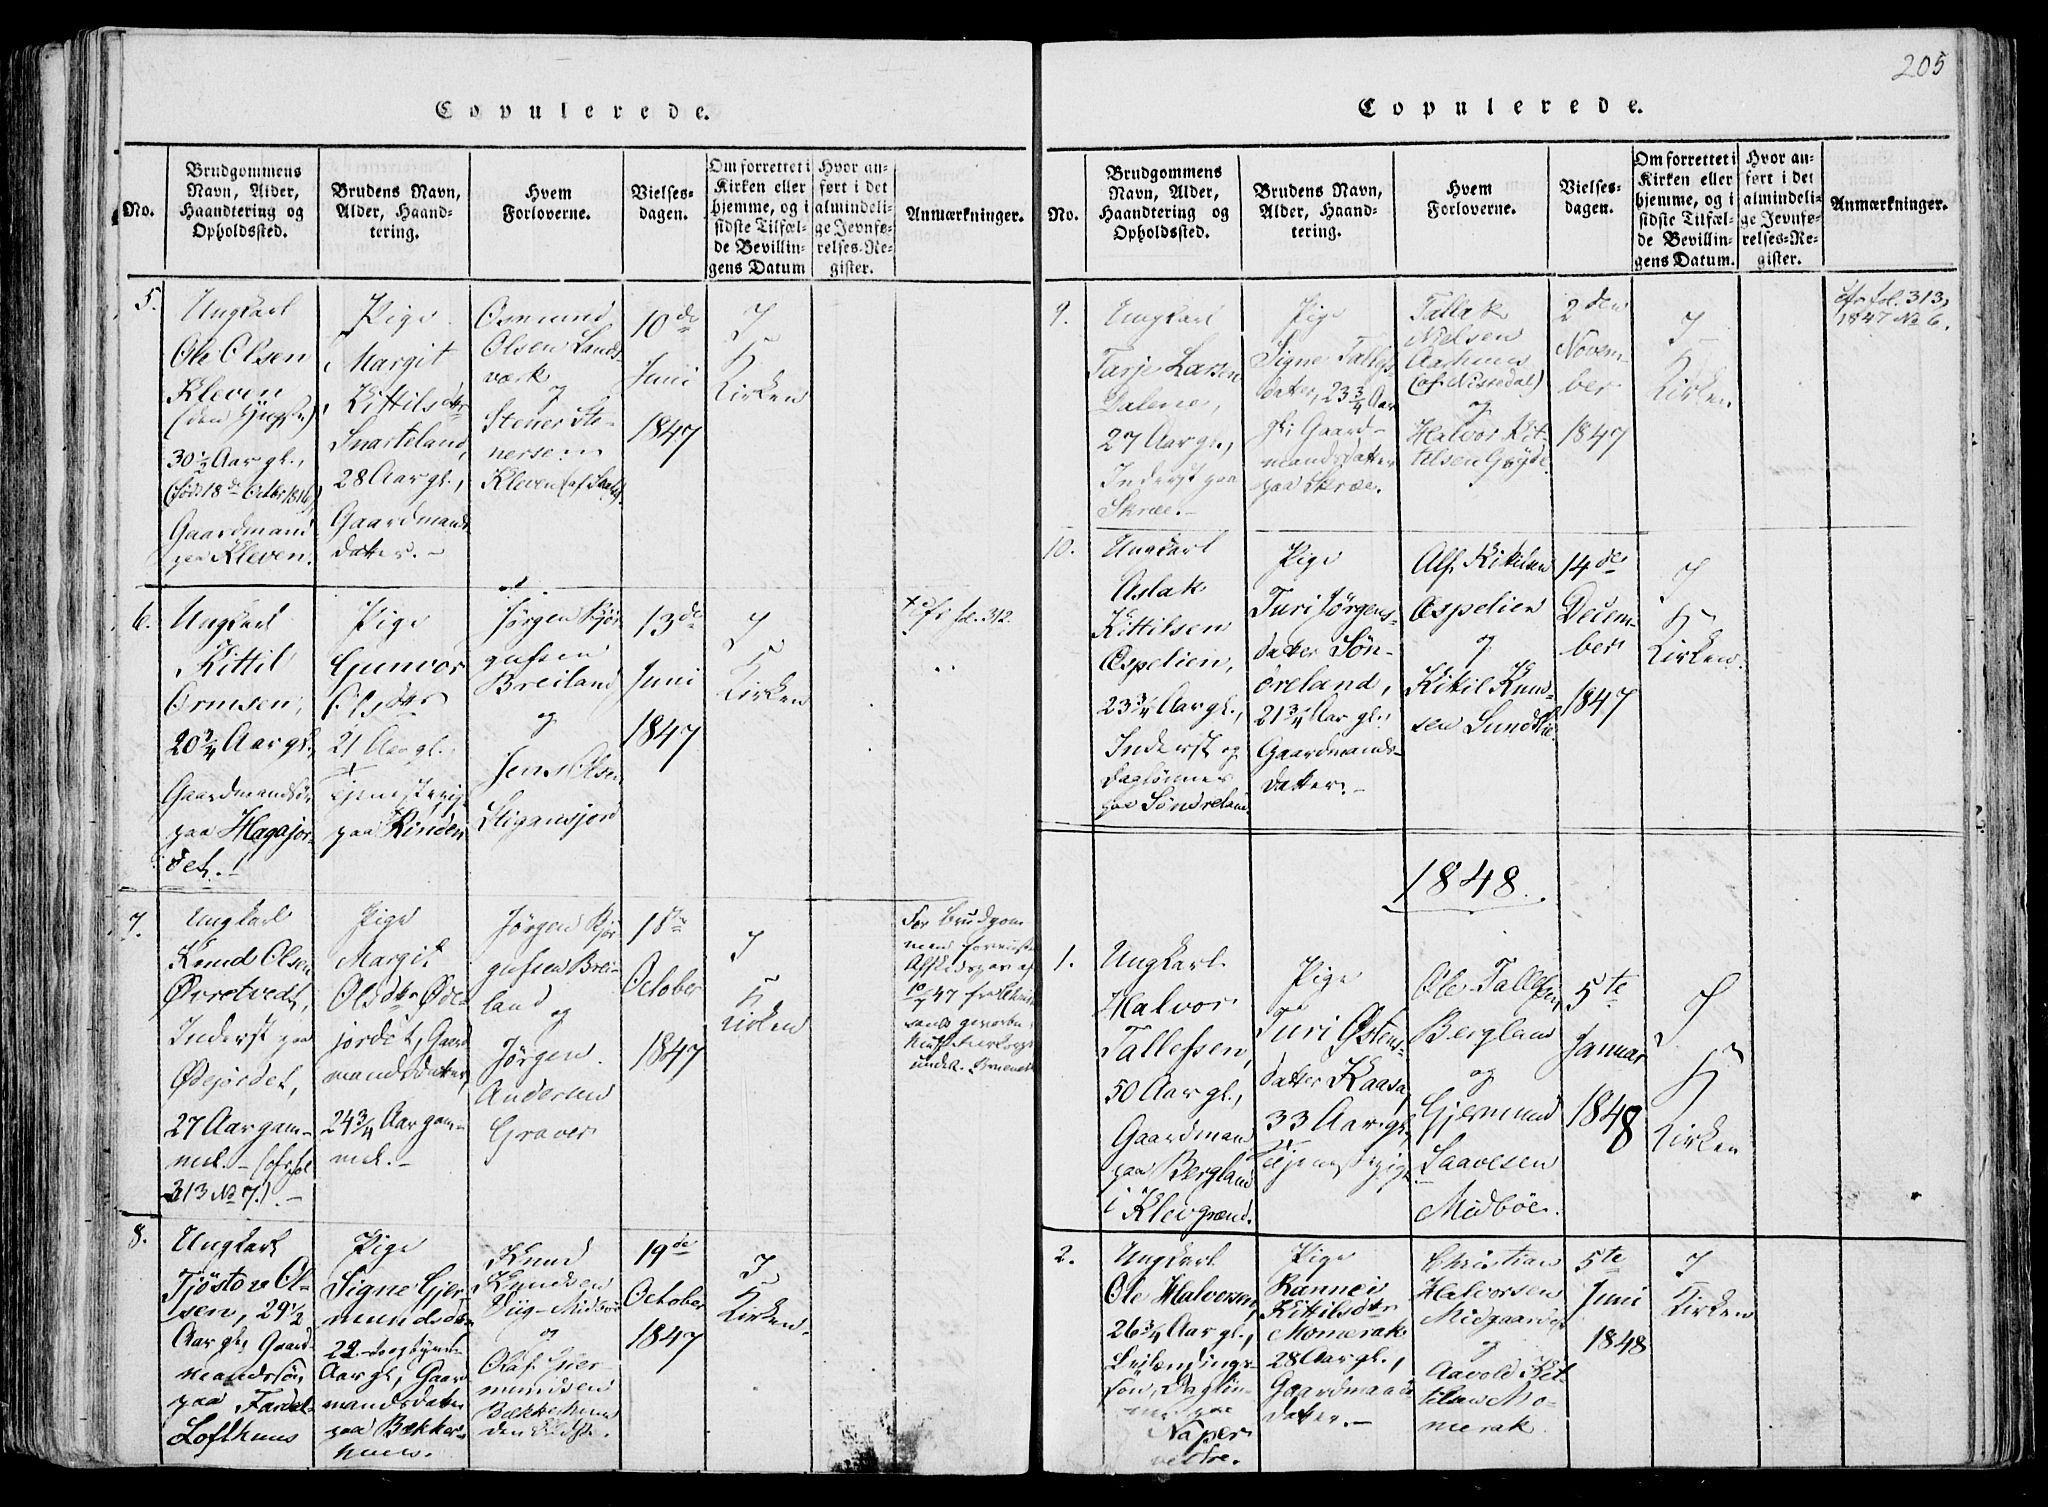 205
Copulerede.
No.
Brudgommens
Navn, Alder,
Haandtering og
Opholdssted.
Brudens Navn,
Alder, Haand-
tering.
Hvem
Forloverne.
Vielses-
dagen.
Om forrettet i
Kirken eller
hjemme, og i
sidste Tilfæl-
de Bevillin-
gens Datum
Hvor an-
ført i det
almindeli-
ge Jevnfø-
relses-Re-
gister.
Anmærkninger.
5.
Ungkarl
Ole Olsen
Kleven
(den Yngste)
30 1/2 Aar gl.,
(født 18de Octbr 1816)
Gaardmand
paa Kleven.
Pige
Margit
Kittilsdtr
Snarteland,
28 Aar gl.,
Gaardmands
datter.-
Osmund
Olsen Lands-
værk
og
Stener Ste-
nersen
Kleven (af
10de
Juni
1847
I
Kirken
6.
Ungkarl
Kittil
Ormsen,
20 3/4 Aar gl.,
Gaardmandsøn
paa Hagajor-
det.
Pige
Gunvor
Olsdtr
21 Aar gl.
Tjenestepige
paa Rinden
Jørgen Bjør-
gufsen
Breiland
og
Jens Olsen
Stigansjord
13de
Juni
1847
I
Kirken
cfr fol. 312.
7.
Ungkarl
Knud Olsen
Ørretvedt,
Inderst paa
Ødejordet,
27 Aar gam-
mel. - (cfr fol
313 No 7.) -
Pige
Margit
Olsdtr Øde-
jordet, Gaard
mandsdatter,
24 3/4 Aar gam-
mel.-
Jørgen Bjør
gufsen Brei-
land
og
Jørgen
Andersen
Graver
18de
October
1847
I
Kirken
For Brudgom
men foreviist
Afskedspas af
8.
Ungkarl
Tjøstov Ol-
sen, 29 1/2
Aar gl., Gaard-
mandssøn
paa
Lofthuus
Pige
Signe Gjer-
mundsdtr
22
Aar gl., Gaard
mandsdatter
paa Bækker-
huus.
Knud
Knudsen
Viig-Midbøe
og
Olaf Gjer-
mundsen
Bækkerhuus
den Eldste.
19de
October
1847
I
Kirken.
Copulerede.
No.
Brudgommens
Navn, Alder,
Haandtering og
Opholdssted.
Brudens Navn,
Alder, Haand-
tering.
Hvem
Forloverne.
Vielses-
dagen.
Om forrettet i
Kirken eller
hjemme, og i
sidste Tilfæl-
de Bevillin-
gens Datum.
Hvor an-
ført i det
almindeli-
ge Jevnfø-
relses-Re-
gister.
Anmærkninger.
9.
Ungkarl
Tarje Larsen
Dalene,
27 Aar gl.,
Inderst paa
Skræe.-
Pige
Signe Tallefs
datter, 23 3/4 Aar
gl., Gaard-
mandsdatter
paa Skræe.
Tallak
Nielsen
Aashuus
(af Nissedal)
og
Halvor Kit-
tilsen Gryde
2den
Novem-
ber
1847
I
Kirken
cfr fol. 313,
1847 No 6.
10.
Ungkarl
Aslak
Kittilsen
Espelien,
23 3/4 Aar gl.,
Inderst og
Daglønner
paa Søndreland
Pige
Turi Jørgens-
datter Søn-
dreland,
21 3/4 Aar gl.,
Gaardmands-
datter.-
Alf Kittilsen
Espelien
og
Kittil Knud-
sen Sundsli
14de
Decem-
ber
1847
I
Kirken.
1848.
1.
Ungkarl
Halvor
Tallefsen,
50 Aar gl.,
Gaardmand
paa Bergland
i Klevgrend.
Pige
Turi Østens-
datter Kaasa,
33 Aar gl.,
Tjenestepige
Ole Tallefsen
Bergland
og
Gjermund
Saavesen
Midbøe.
5te
Januar
1848
I
Kirken
2.
Ungkarl
Ole Halvorsen,
26 3/4 Aar gl.,
Leilændings-
søn, Dagløn-
ner paa
Naper
vestre.
Pige
Rannei
Kittilsdtr
Momerak
28 Aar gl.,
Gaardmands
datter.-
Christian
Halvorsen
Midgaarden
og
Aavold Kit
tilsen Mo-
merak.
5te
Juni
1848
I
Kirken